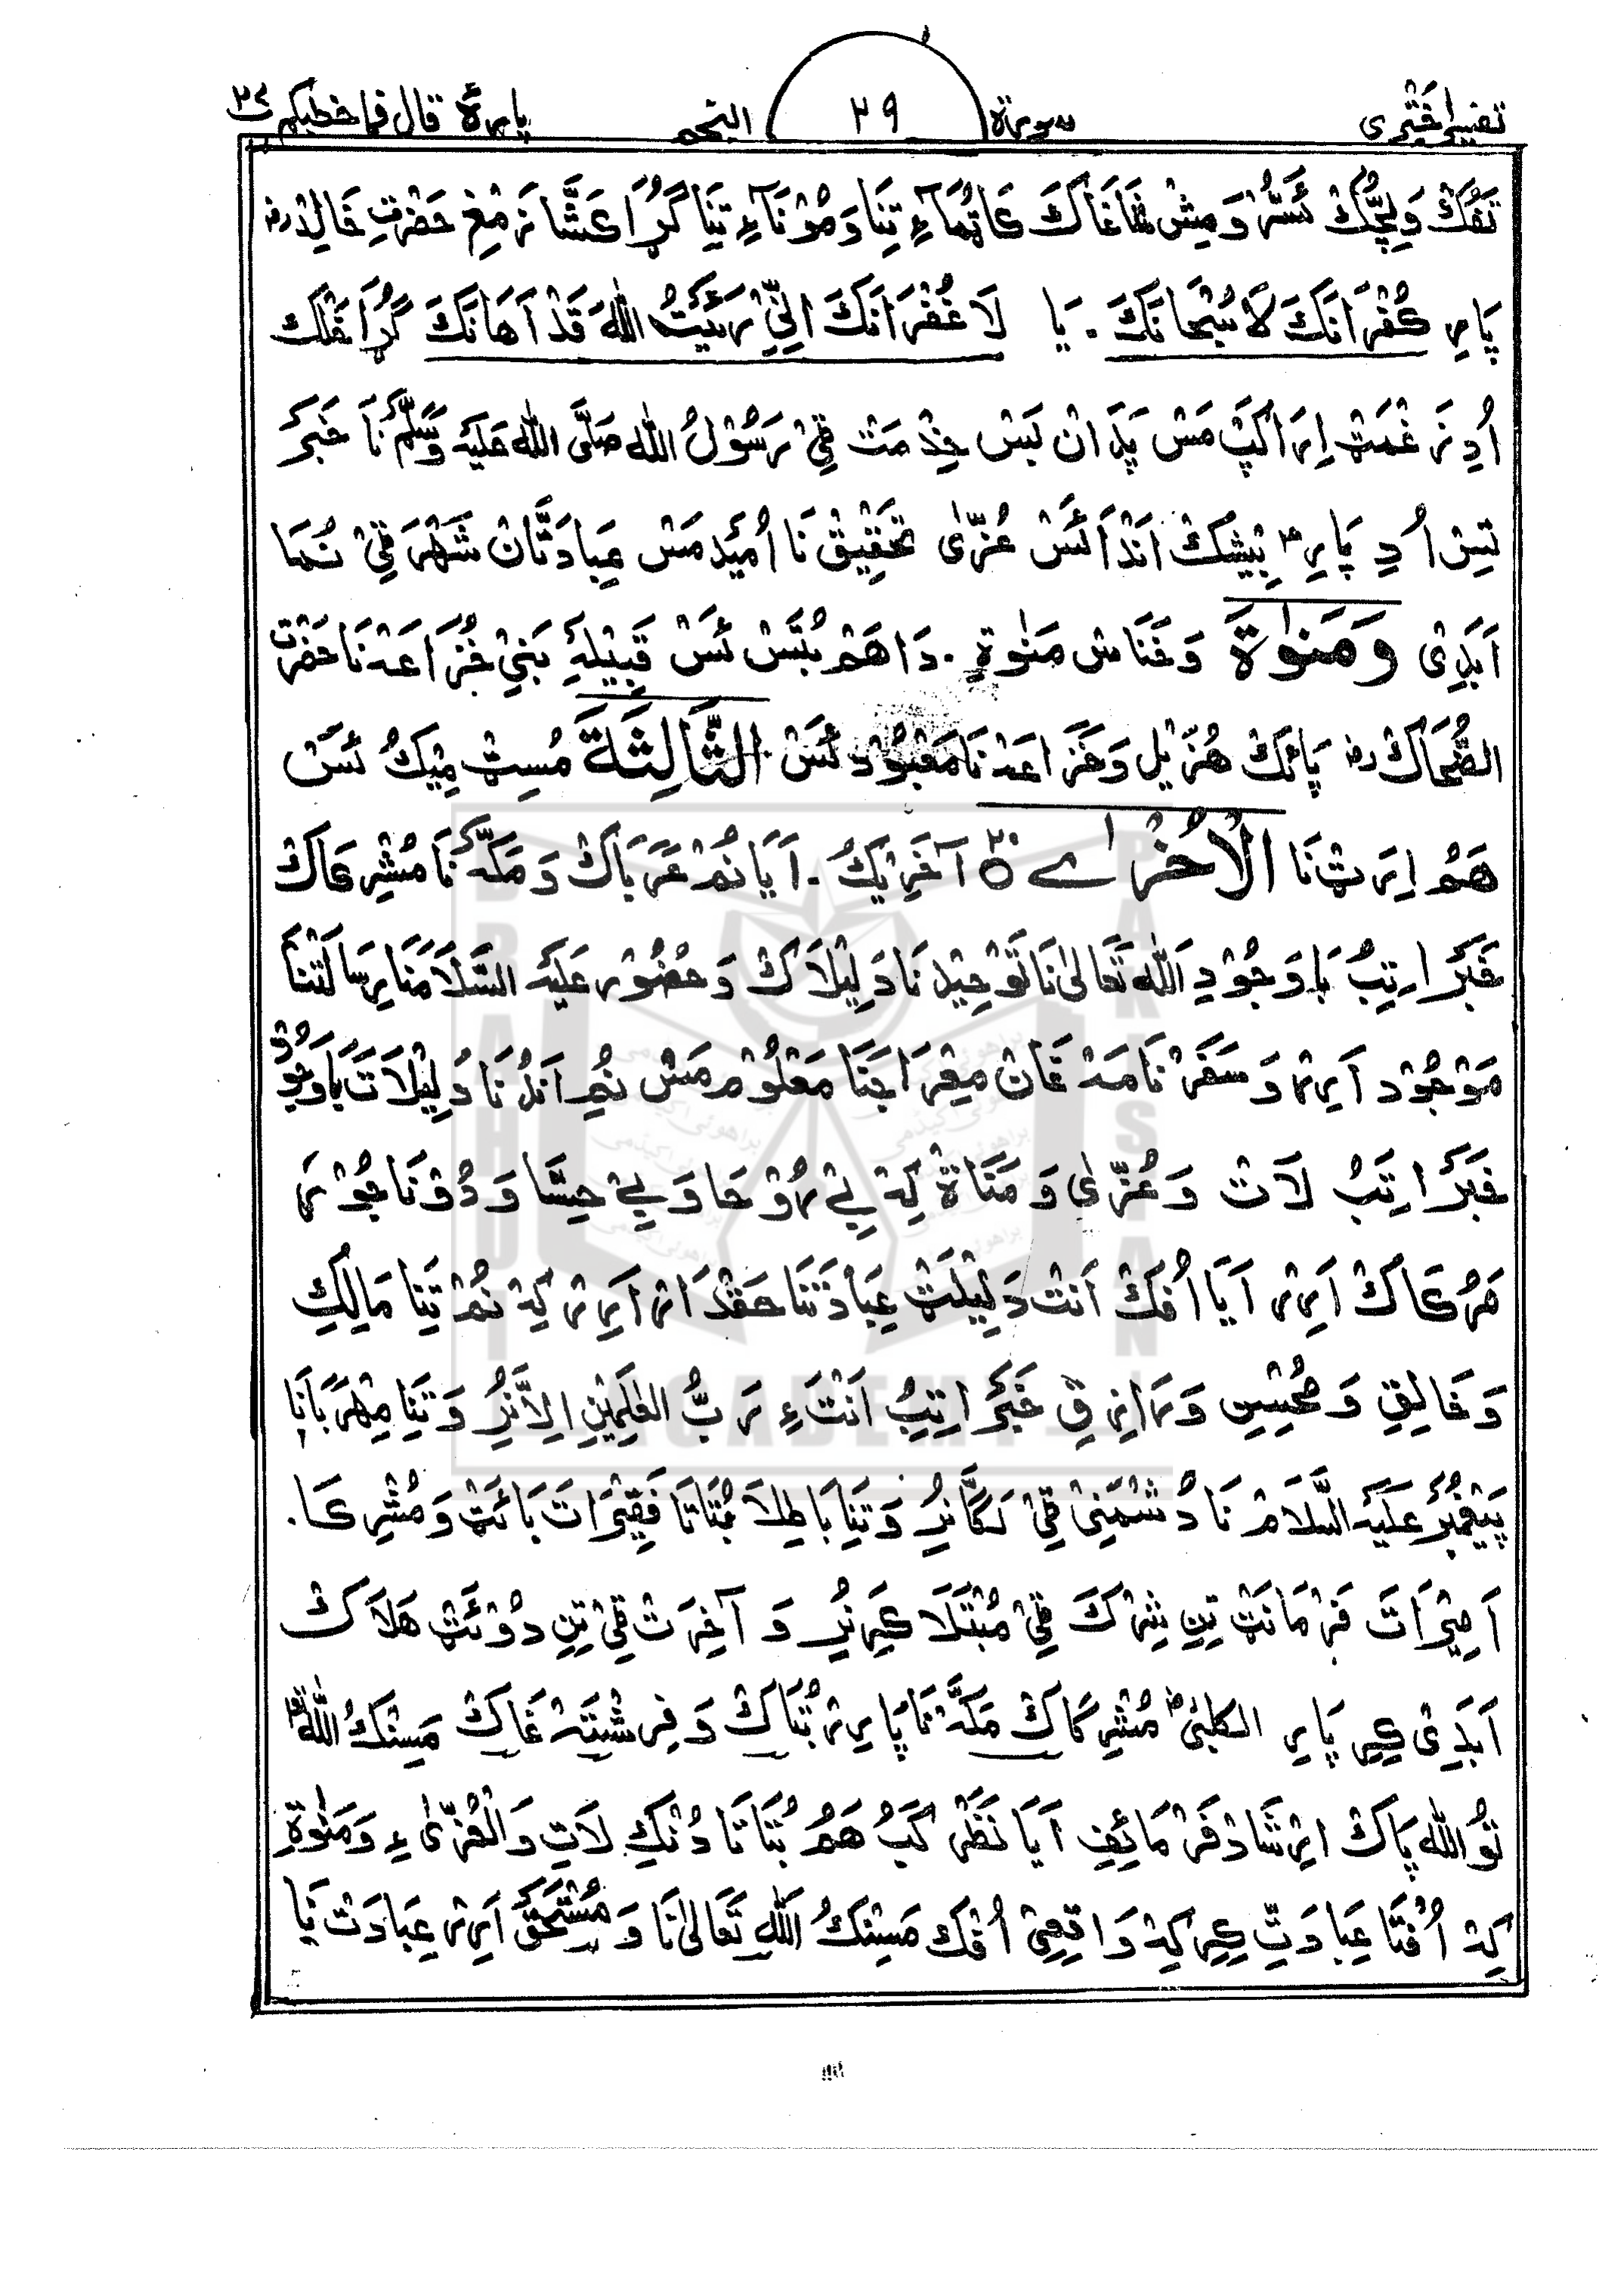 تفسیر اختری سورۃ ۲۹ النجم پارہ قال فما خطبکم ۲۷
تَفُک وَلِچُّک ئَسُّر وَمِش شَاغَاک کَاٹُمَاءِ تِنَا وَمُوْنَاءِ تِنَا گُڑَا عَشَّا نَر مِغ حَضْرَتِ خَالِدْ رض
پَارِ کُفْرَانَکَ لَا سُبْحَانَکَ. یَا لَا غُفْرَانَکَ اِنِّیْ رَئَیْتُ اللہَ قَدْ اَهَانَکَ گُڑَا
اُدِ نَرغْمَٹ اِرَا کَپ مَس پَدَان بَس خِذمَت ٹِی رَسُوْلُ اللہ صَلَّی اللہ عَلَیْہِ وَسَلَّمَ نَا خَبَر
تِس اُدِ پَارِ بِیْشَک اَنْدَا ئَسْ عُزّٰی تَحْقِیْق نَا اُمِیْد مَس عِبَادَتَّانْ شَهْرَ ٹِی نُمَا
اَبَدِی وَمَنٰوةَ وَخَنَاس مَنٰوةِ. دَا هَمْ بُتَّس ئَسْ قَبِیْلَہِ بَنِیْ خُزَاعَہ نَا حَضْرَت
الضَّحَاک رض پَائِک هُزَیْل وَخَزَاعَہ نَا مَعْبُوْد ئَسْ الثَّالِثَةَ مُسِٹ مِیْکُ ئَسْ
هَمُ اِرَٹ نَا الْاُخْرٰی ۲۰ آخَرِیْکُ. اَیَا نُم عَرَبَاک وَمَکَّہ نَا مُشْرِکَاک
خَبَر اَتِبُ بَاوَجُوْدِ اَللہ تَعَالٰی نَا تَوْحِیْد نَا دَلِیْلَاک وَحُضُوْر عَلَیْہِ السَّلَامُنَا رِسَالَتْنَا
مَوْجُوْد اَرِر وَسَفَرْ نَامَہ غَان مِعْرَاجَنَا مَعْلُوْم مَس نُمِ اَنْدُنَا دَلِیْلَاتَ بَاوَجُوْد
خَبَر اَتِبُ لَاتْ وَعُزّٰی وَمَنَاةْ کِہ بِے رُوْحَا وَبِے حِسَّا وَدُوْ نَا جُوْر
مَرُکَاک اَرِر اَیَا اُفُک اَنْت دَلِیْلَٹ عِبَادَتَنَا حَقْدَار اَرِر کِہ نُمْ تِنَا مَالِکِ
وَخَالِقِ وَمُحْسِنِ وَرَازِقِ خَبَر اَتِبُ اَنْتَءِ رَبُّ الْعٰلَمِیْنِ اِلَّا نِرُ وَتِنَا مِهْرَبَانَا
پَیْغَمْبَر عَلَیْہِ السَّلَامْ نَا دُشْمَنِی ٹِی لَگَّانِرُ وَتِنَا بَاطِلَا بُتَّاتَا فَقِیْرَاتَ بَائَٹ وَمُشْرِکَا.
اَمِیْرَاتَ فَرْمَانَٹ تِنِ شِرْکَ ٹِی مُبْتَلَا کَرِنُرِ وَآخِرَتْ ٹِی تِنِ دُوْئَٹ هَلَاک
اَبَدِی کِرِ پَارِ الکلبی رض مُشْرِکَاک مَکَّہ نَا پَارِر بُتَّاک وَفِرِشْتَہ غَاک مَسِنْکُ اللہ نا
تَوْ اللہ پَاک اِرْشَاد فَرْمَائِفِ اَیَا نَظَرْ کَبُ هَمُ بُتَّاتَا دُنْکِ لَاتِ وَالْعُزّٰی ءِ وَمَنٰوةِ
کِہ اُفْتَا عِبَادَتِ کِرِ کِہ وَاقِعِی اُفْک مَسِنْکُ اَللہِ تَعَالٰی نَا وَمُسْتَحَقَّ اَرِر عِبَادَتْ نَا یَا
BRAHUI ACADEMY PAKISTAN